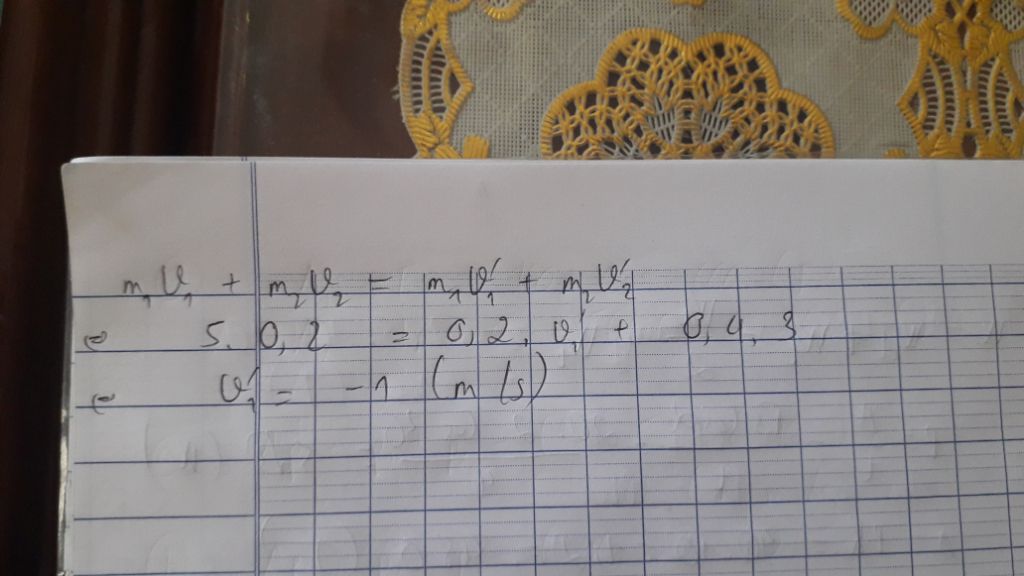 m₁v₁ + m₂v₂ = m₁v₁' + m₂v₂'
⇔ 5. 0,2 = 0,2. v₁' + 0,4. 3
⇔ v₁' = -1 (m/s)